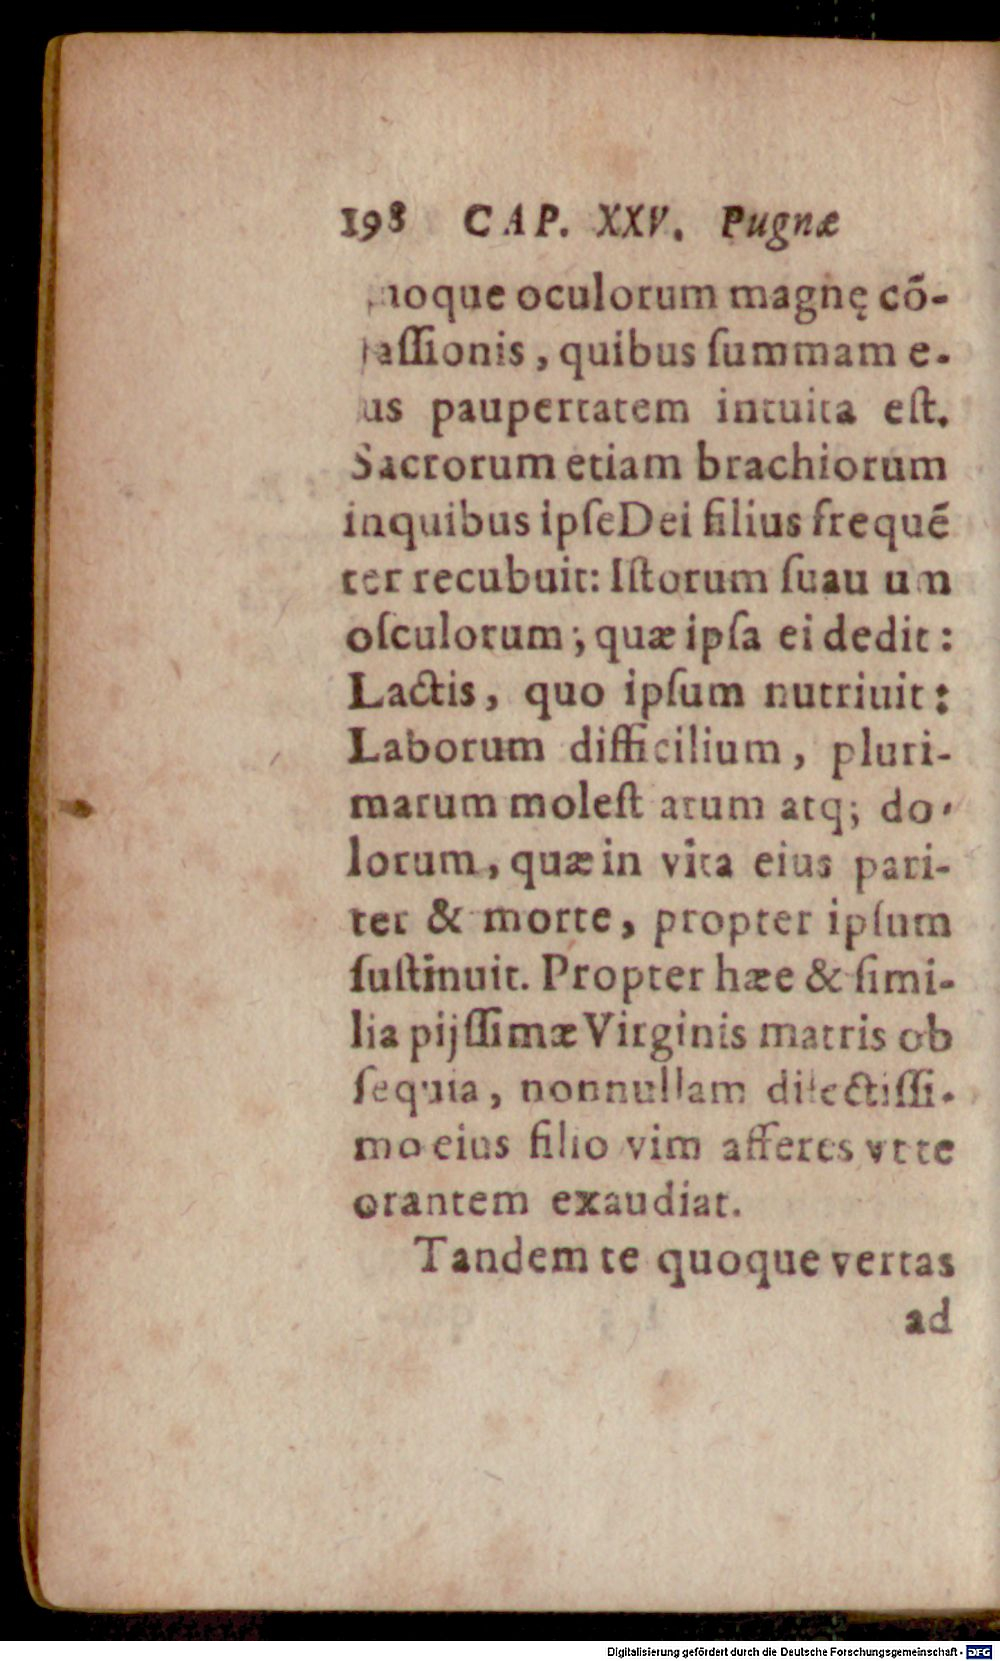 198 CAP. XXV. Pugnæ
noque oculorum magnę cõ-
passionis, quibus summam e-
ius paupertatem intuita est.
Sacrorum etiam brachiorum
inquibus ipseDei filius frequẽ
ter recubuit: Istorum suauium
osculorum; quæ ipsa ei dedit:
Lactis, quo ipsum nutriuit:
Laborum difficilium, pluri-
marum molestarum atq; do-
lorum, quæ in vita eius pari-
ter & morte, propter ipsum
sustinuit. Propter hæe & simi-
lia pijssimæ Virginis matris ob
sequia, nonnullam dilectissi-
mo eius filio vim afferes vt te
orantem exaudiat.
Tandem te quoque vertas
ad
Digitalisierung gefördert durch die Deutsche Forschungsgemeinschaft - DFG